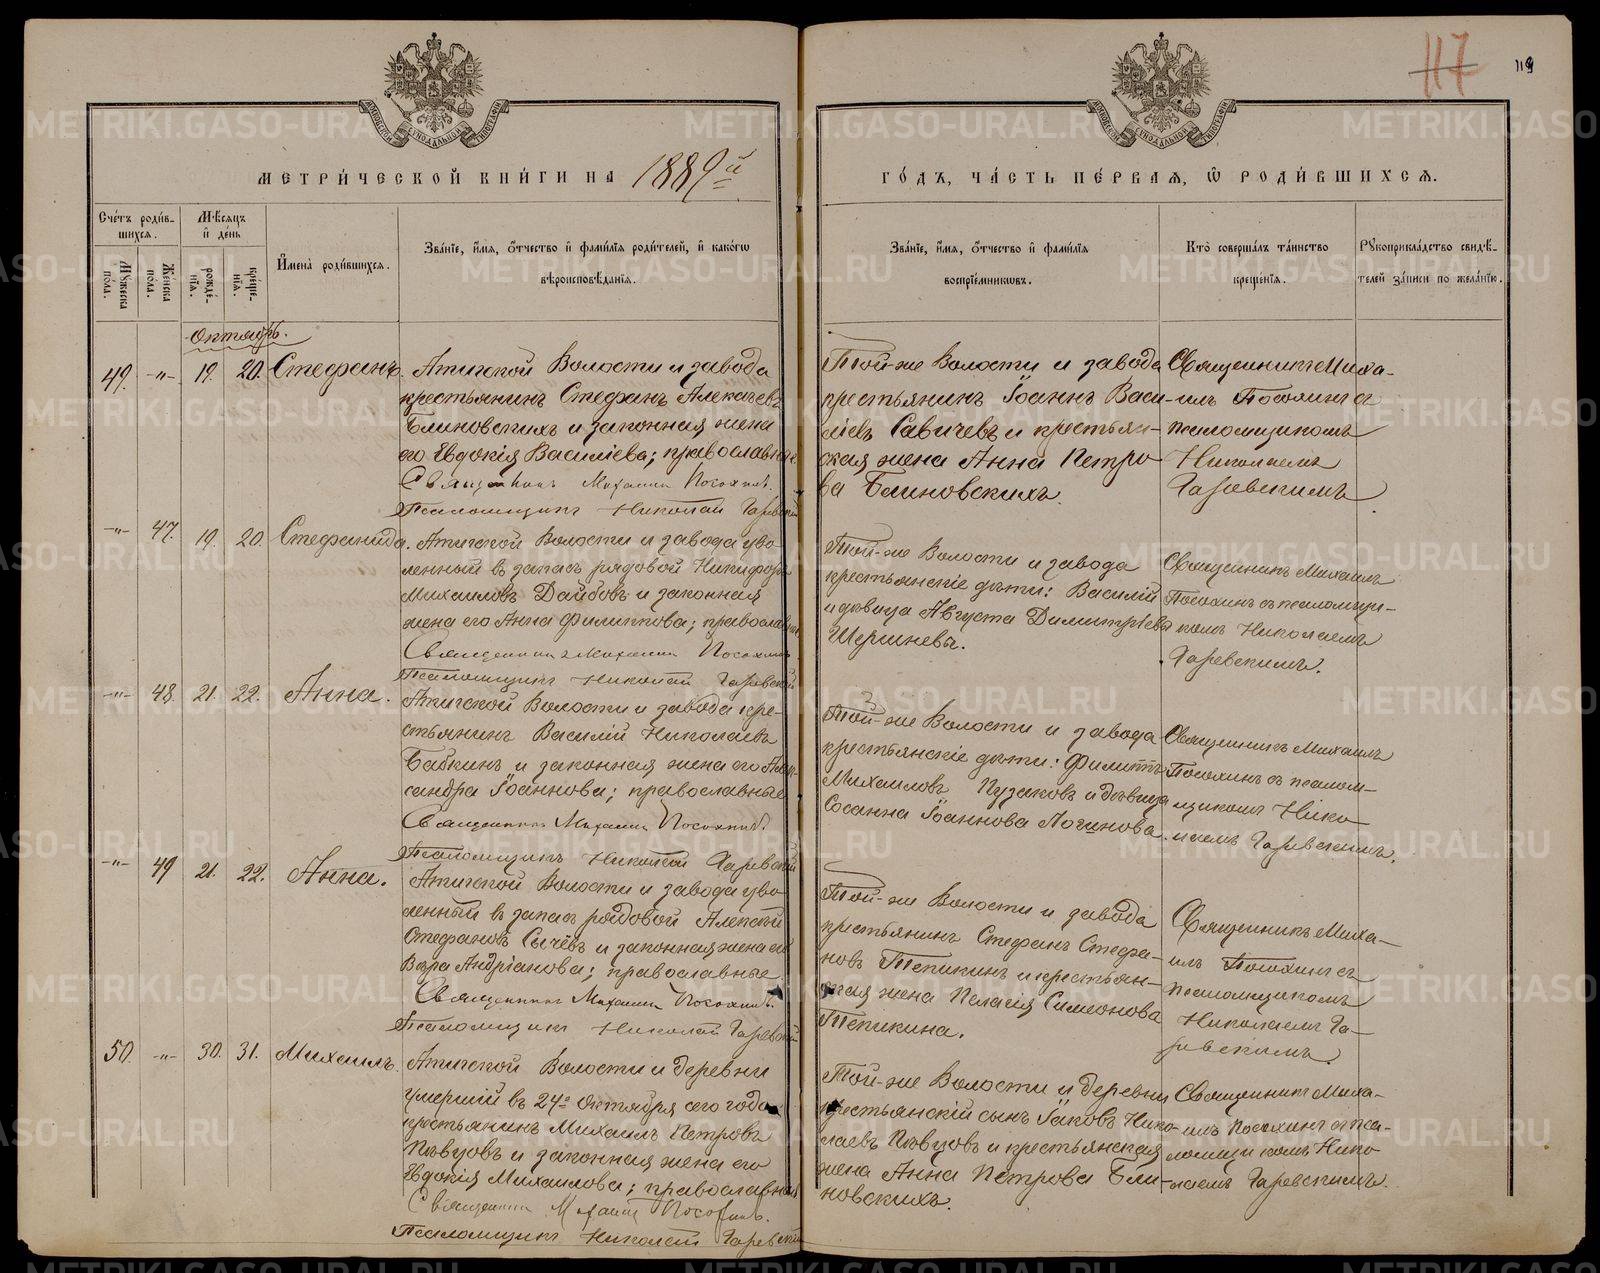 117
119
МЕТРИ́ЧЕСКОЙ КНИ́ГИ НА 1889й
ГО́ДЪ, ЧА́СТЬ ПЕ́РВАЯ, Ѡ РОДИ́ВШИХСЯ.
Сче́тъ роди́в-
шихся.
Му́жеска
по́ла.
Же́нска
по́ла.
Мѣ́сяцъ
и де́нь
рожде́-
нїя.
креще́-
нїя.
И҆мена̀ роди́вшихся.
Зва́нїе, и҆́мя, ѻ҆́тчество и҆ фами́лїя роди́телей, и҆ како́гѡ
вѣроисповѣ́данїя.
Зва́нїе, и҆́мя, ѻ҆́тчество и҆ фами́лїя
воспрїе́мниковъ.
Кто̀ соверша́лъ та́инство
креще́нїя.
Рукоприкла́дство свидѣ́-
телей за́писи по жела́нїю.
Октябрь.
49. -"- 19. 20. Стефанъ.
Атигской Волости и завода
крестьянинъ Стефанъ Алексѣевъ
Блиновскихъ и законная жена
его Евдокія Василіева; православные
Священникъ Михаилъ Посохинъ.
Псаломщикъ Николай Гаревскій
Той-же Волости и завода
крестьянинъ Іоаннъ Васи-
ліевъ Савичевъ и крестьян-
ская жена Анна Петро-
ва Блиновскихъ.
Священникъ Миха-
илъ Посохинъ съ
псаломщикомъ
Николаемъ
Гаревскимъ
-"- 47. 19. 20. Стефанида.
Атигской Волости и завода уво-
ленный въ запасъ рядовой Никифоръ
Михаиловъ Дайбовъ и законная
жена его Анна Филиппова; православные
Священникъ Михаилъ Посохинъ
Псаломщикъ Николай Гаревскій
Той-же Волости и завода
крестьянскіе дѣти: Василій
и дѣвица Августа Димитріевы
Шершневы.
Священникъ Михаилъ
Посохинъ съ псаломщи-
комъ Николаемъ
Гаревскимъ.
-"- 48. 21. 22. Анна.
Атигской Волости и завода кре-
стьянинъ Василій Николаевъ
Бабкинъ и законная жена его Алек-
сандра Іоаннова; православные
Священникъ Михаилъ Посохинъ.
Псаломщикъ Николай Гаревскій
Той-же Волости и завода
крестьянскіе дѣти: Филиппъ
Михаиловъ Пузаковъ и дѣвица
Сосанна Іоаннова Логинова.
Священникъ Михаилъ
Посохинъ съ псалом-
щикомъ Нико-
лаемъ Гаревскимъ.
-"- 49 21. 22. Анна.
Атигской Волости и завода уво-
ленный въ запасъ рядовой Алексѣй
Стефановъ Сычёвъ и законная жена его
Вѣра Андріанова; православные
Священникъ Михаилъ Посохинъ.
Псаломщикъ Николай Гаревскій
Той-же Волости и завода
крестьянинъ Стефанъ Стефа-
новъ Тепикинъ и крестьян-
ская жена Пелагія Симеонова
Тепикина.
Священникъ Миха-
илъ Посохинъ съ
псаломщикомъ
Николаемъ Га-
ревскимъ.
50. -"- 30. 31. Михаилъ.
Атигской Волости и деревни
умершій въ 24е Октября сего года
крестьянинъ Михаилъ Петровъ
Пѣвцовъ и законная жена его
Евдокія Михаилова; православныя
Священникъ Михаилъ Посохинъ.
Псаломщикъ Николай Гаревскій
Той-же Волости и деревни
крестьянскій сынъ Іаковъ Нико-
лаевъ Пѣвцовъ и крестьянская
жена Анна Петрова Бли-
новскихъ.
Священникъ Миха-
илъ Посохинъ съ пса-
ломщикомъ Нико-
лаемъ Гаревскимъ.